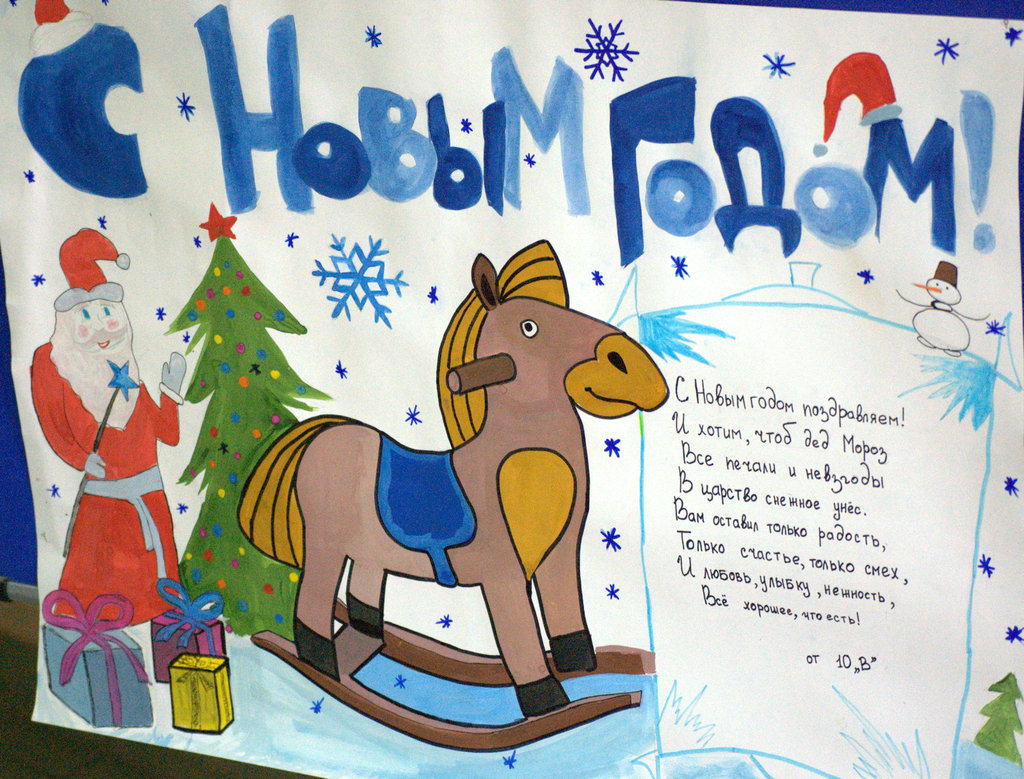 С Новым годом!
С Новым годом поздравляем!
И хотим, чтоб дед Мороз
Все печали и невзгоды
В царство снежное унёс.
Вам оставил только радость,
Только счастье, только смех,
И любовь, улыбку, нежность,
Всё хорошее, что есть!
от 10 „В”